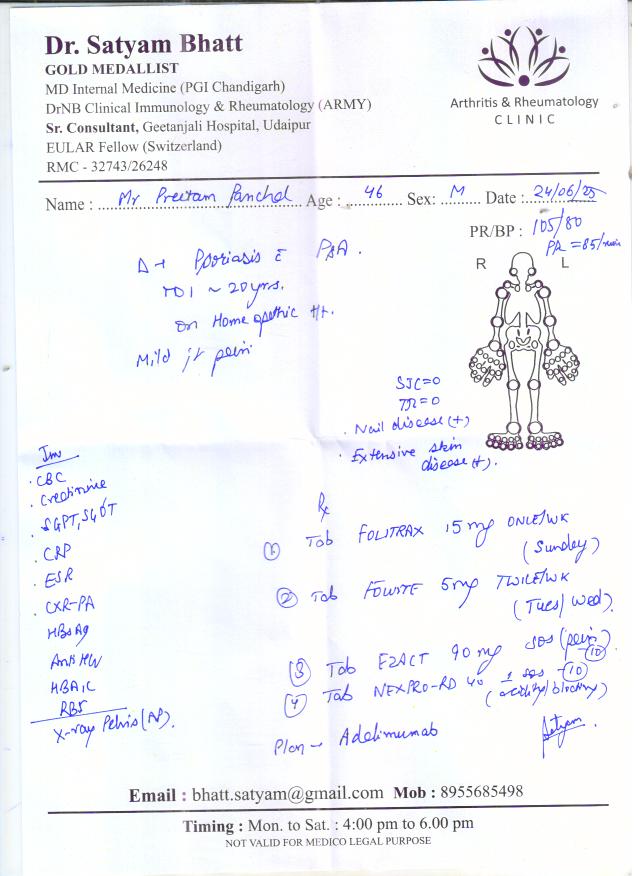 Dr. Satyam Bhatt
GOLD MEDALLIST
MD Internal Medicine (PGI Chandigarh)
DrNB Clinical Immunology & Rheumatology (ARMY)
Sr. Consultant, Geetanjali Hospital, Udaipur
EULAR Fellow (Switzerland)
RMC - 32743/26248
Arthritis & Rheumatology
CLINIC
Name : Mr. Preetam Panchal Age : 46 Sex: M Date : 24/06/25
PR/BP : 105/80
PR = 85/min
R L
Psoriasis c PsA.
TDI ~ 20yrs.
on Homeopathic tt.
Mild jt pain
SJC=0
TJC=0
. Nail disease (+)
. Extensive skin
disease (+).
Inv
. CBC
. Creatinine
. SGPT, SGOT
. CRP
. ESR
. CXR-PA
HBsAg
Anti HCV
HBA1C
RBS
X-ray Pelvis (AP).
Rx
① Tab FOLITRAX 15 mg ONCE/WK
(Sunday)
② Tab FOLVITE 5mg TWICE/WK
(Tues/Wed).
③ Tab EZACT 90 mg SOS (pain)
10
④ Tab NEXPRO-RD 40 1 SOS 10
(acidity/bloating)
Plan - Adalimumab
Satyam.
Email : bhatt.satyam@gmail.com Mob : 8955685498
Timing : Mon. to Sat. : 4:00 pm to 6.00 pm
NOT VALID FOR MEDICO LEGAL PURPOSE